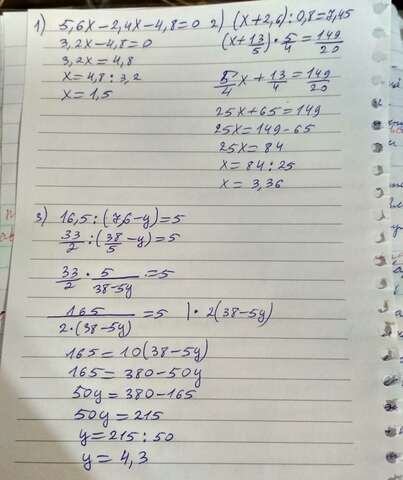 1) 5,6x-2,4x-4,8=0
3,2x-4,8=0
3,2x=4,8
x=4,8:3,2
x=1,5
2) (x+2,6):0,8=7,45
(x+13/5)·5/4=149/20
5/4x+13/4=149/20
25x+65=149
25x=149-65
25x=84
x=84:25
x=3,36
3) 16,5:(7,6-y)=5
33/2:(38/5-y)=5
33/2·5/38-5y=5
165/2·(38-5y)=5 |·2(38-5y)
165=10(38-5y)
165=380-50y
50y=380-165
50y=215
y=215:50
y=4,3